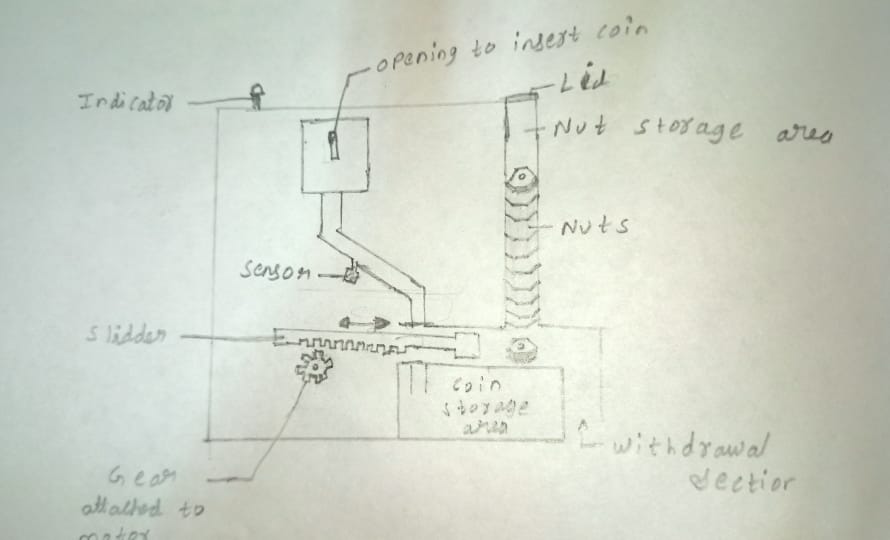 opening to insert coin
Lid
Indicator
Nut storage area
Nuts
Sensor
Slidder
Coin
storage
area
withdrawal
section
Gear
attached to
motor